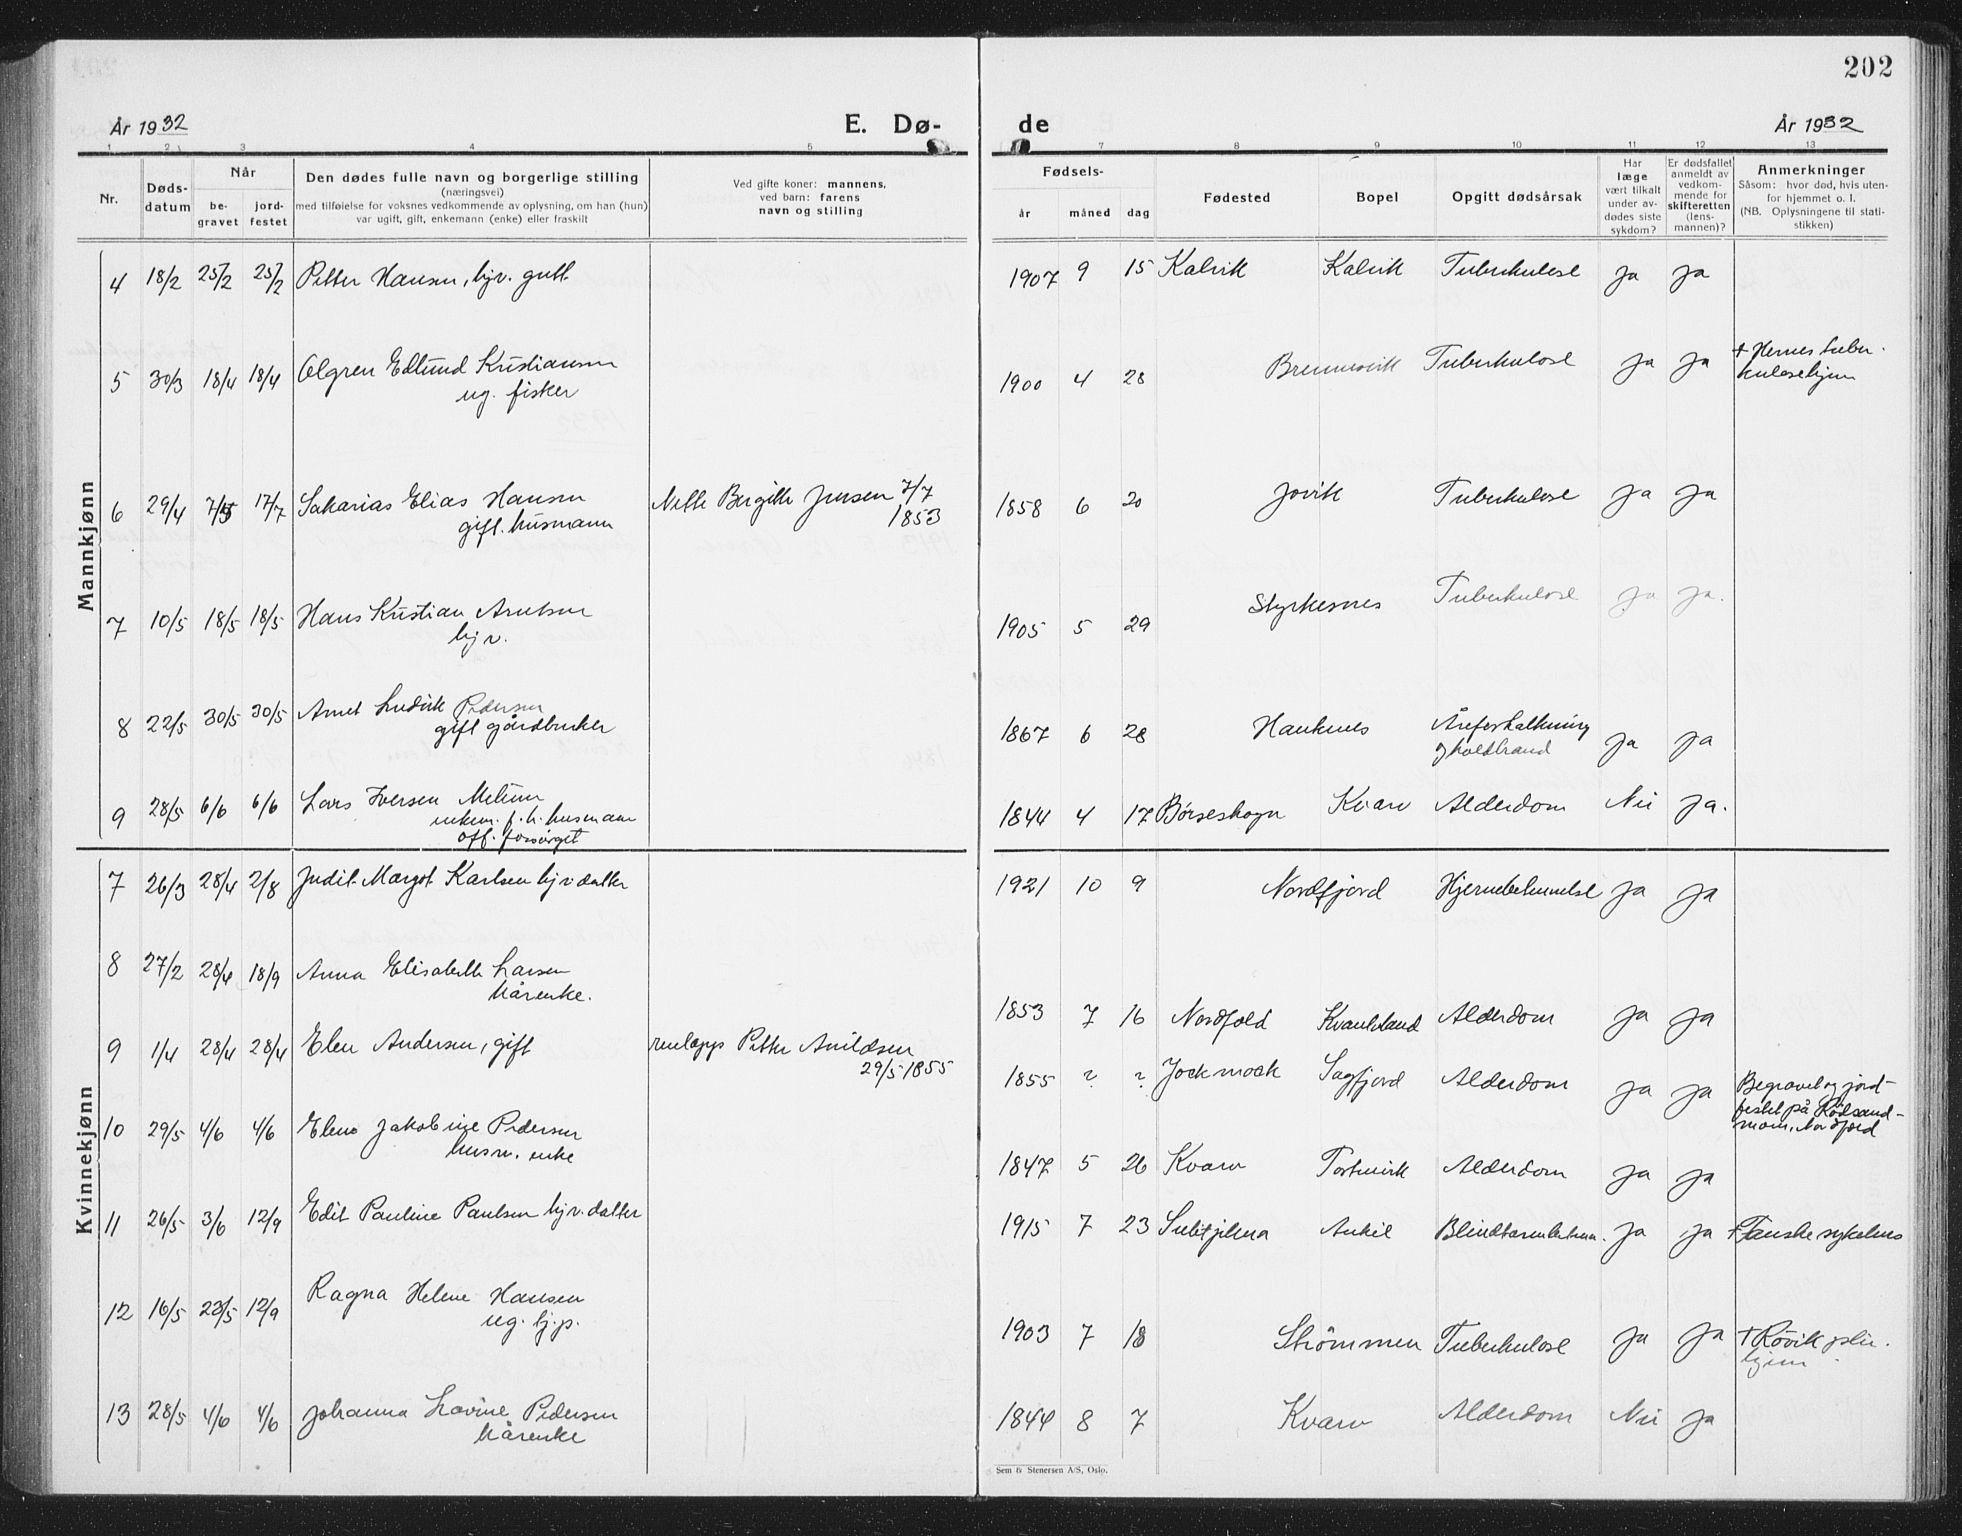 202
År 1932
E. Dø-
de
År 1932
1 2 3 4 5 7 8 9 10 11 12 13
Nr.
Døds-
datum
Når
be-
gravet
jord-
festet
Den dødes fulle navn og borgerlige stilling
(næringsvei)
med tilføielse for voksnes vedkommende av oplysning, om han (hun)
var ugift, gift, enkemann (enke) eller fraskilt
Ved gifte koner: mannens,
ved barn: farens
navn og stilling
Fødsels-
år måned dag
Fødested
Bopel
Opgitt dødsårsak
Har
læge
vært tilkalt
under av-
dødes siste
sykdom?
Er dødsfallet
anmeldt av
vedkom-
mende for
skifteretten
(lens-
mannen)?
Anmerkninger
Såsom: hvor død, hvis uten-
for hjemmet o. l.
(NB. Oplysningene til stati-
stikken)
Mannkjønn
4 18/2 25/2 25/2 Petter Hansen, hjv. gutt 1907 9 15 Kalvik Kalvik Tuberkulose ja ja
5 30/3 18/4 18/4 Olgren Edlund Kristiansen
ug. fisker
1900 4 28 Brennvik Tuberkulose ja ja + Hernes tuber-
kulosehjem
6 29/4 7/5 17/7 Sakarias Elias Hansen
gift. husmann
Nette Bergitte Jensen 7/7
1853
1858 6 20 Jovik Tuberkulose ja ja
7 10/5 18/5 18/5 Hans Kristian Arntsen
hjv.
1905 5 29 Styrkesnes Tuberkulose ja ja.
8 22/5 30/5 30/5 Arnet Ludvik Pedersen
gift gårdbruker
1867 6 28 Hauknes Åreforkalkning
og koldbrand ja ja
9 28/5 6/6 6/6 Lars Iversen
enkem. f. h. husmann
off. forsørget
1844 4 17 Børseskogn Kvarv Alderdom Nei ja.
Kvinnekjønn
7 26/3 28/4 2/8 Judit Margot Karlsen hjv datter 1921 10 9 Nordfjord Hjernebetennelse ja ja
8 27/2 28/4 18/9 Anna Elisabeth Larsen
kårenke.
1853 7 16 Nordfold Kvanlkland Alderdom ja ja
9 1/4 28/4 28/4 Elen Andersen, gift renlapp Petter Anildsen
29/5 1855
1855 ? ? Jockmock Sagfjord Alderdom ja ja Begravet og jord-
festet på Rødsand-
moen, Nordfjord
10 29/5 4/6 4/6 Elene Jakobine Pedersen
husm. enke
1847 5 26 Kvarv Tortenvik Alderdom ja ja
11 26/5 3/6 12/9 Edit Pauline Paulsen hjv. datter 1915 7 23 Sulitjelma Ankil Blindtarmbetenn. ja ja + Fauske sykehus
12 16/5 23/5 12/9 Ragna Helene Hansen
ug. hj.p.
1903 7 18 Strømmen Tuberkulose ja ja + Røvik pleie-
hjem
13 28/5 4/6 4/6 Johanna Lovine Pedersen
kårenke
1844 8 7 Kvarv Alderdom Nei ja
Sem & Stenersen A/S, Oslo.